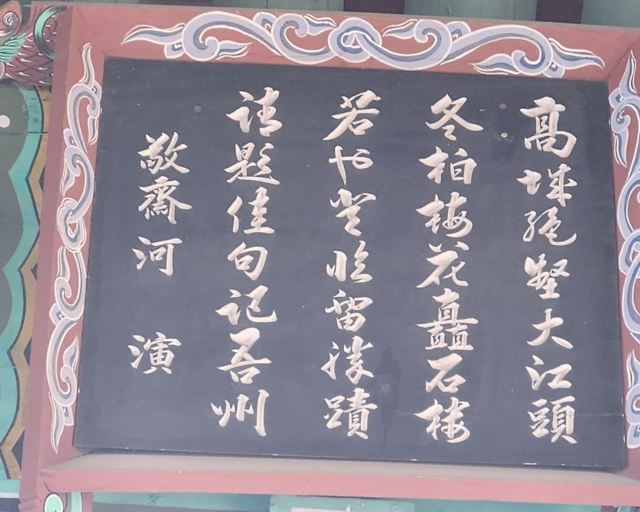 高城絶壑大江頭
冬柏梅花矗石樓
若也登臨留勝蹟
請題佳句記吾州
敬齋 河 演